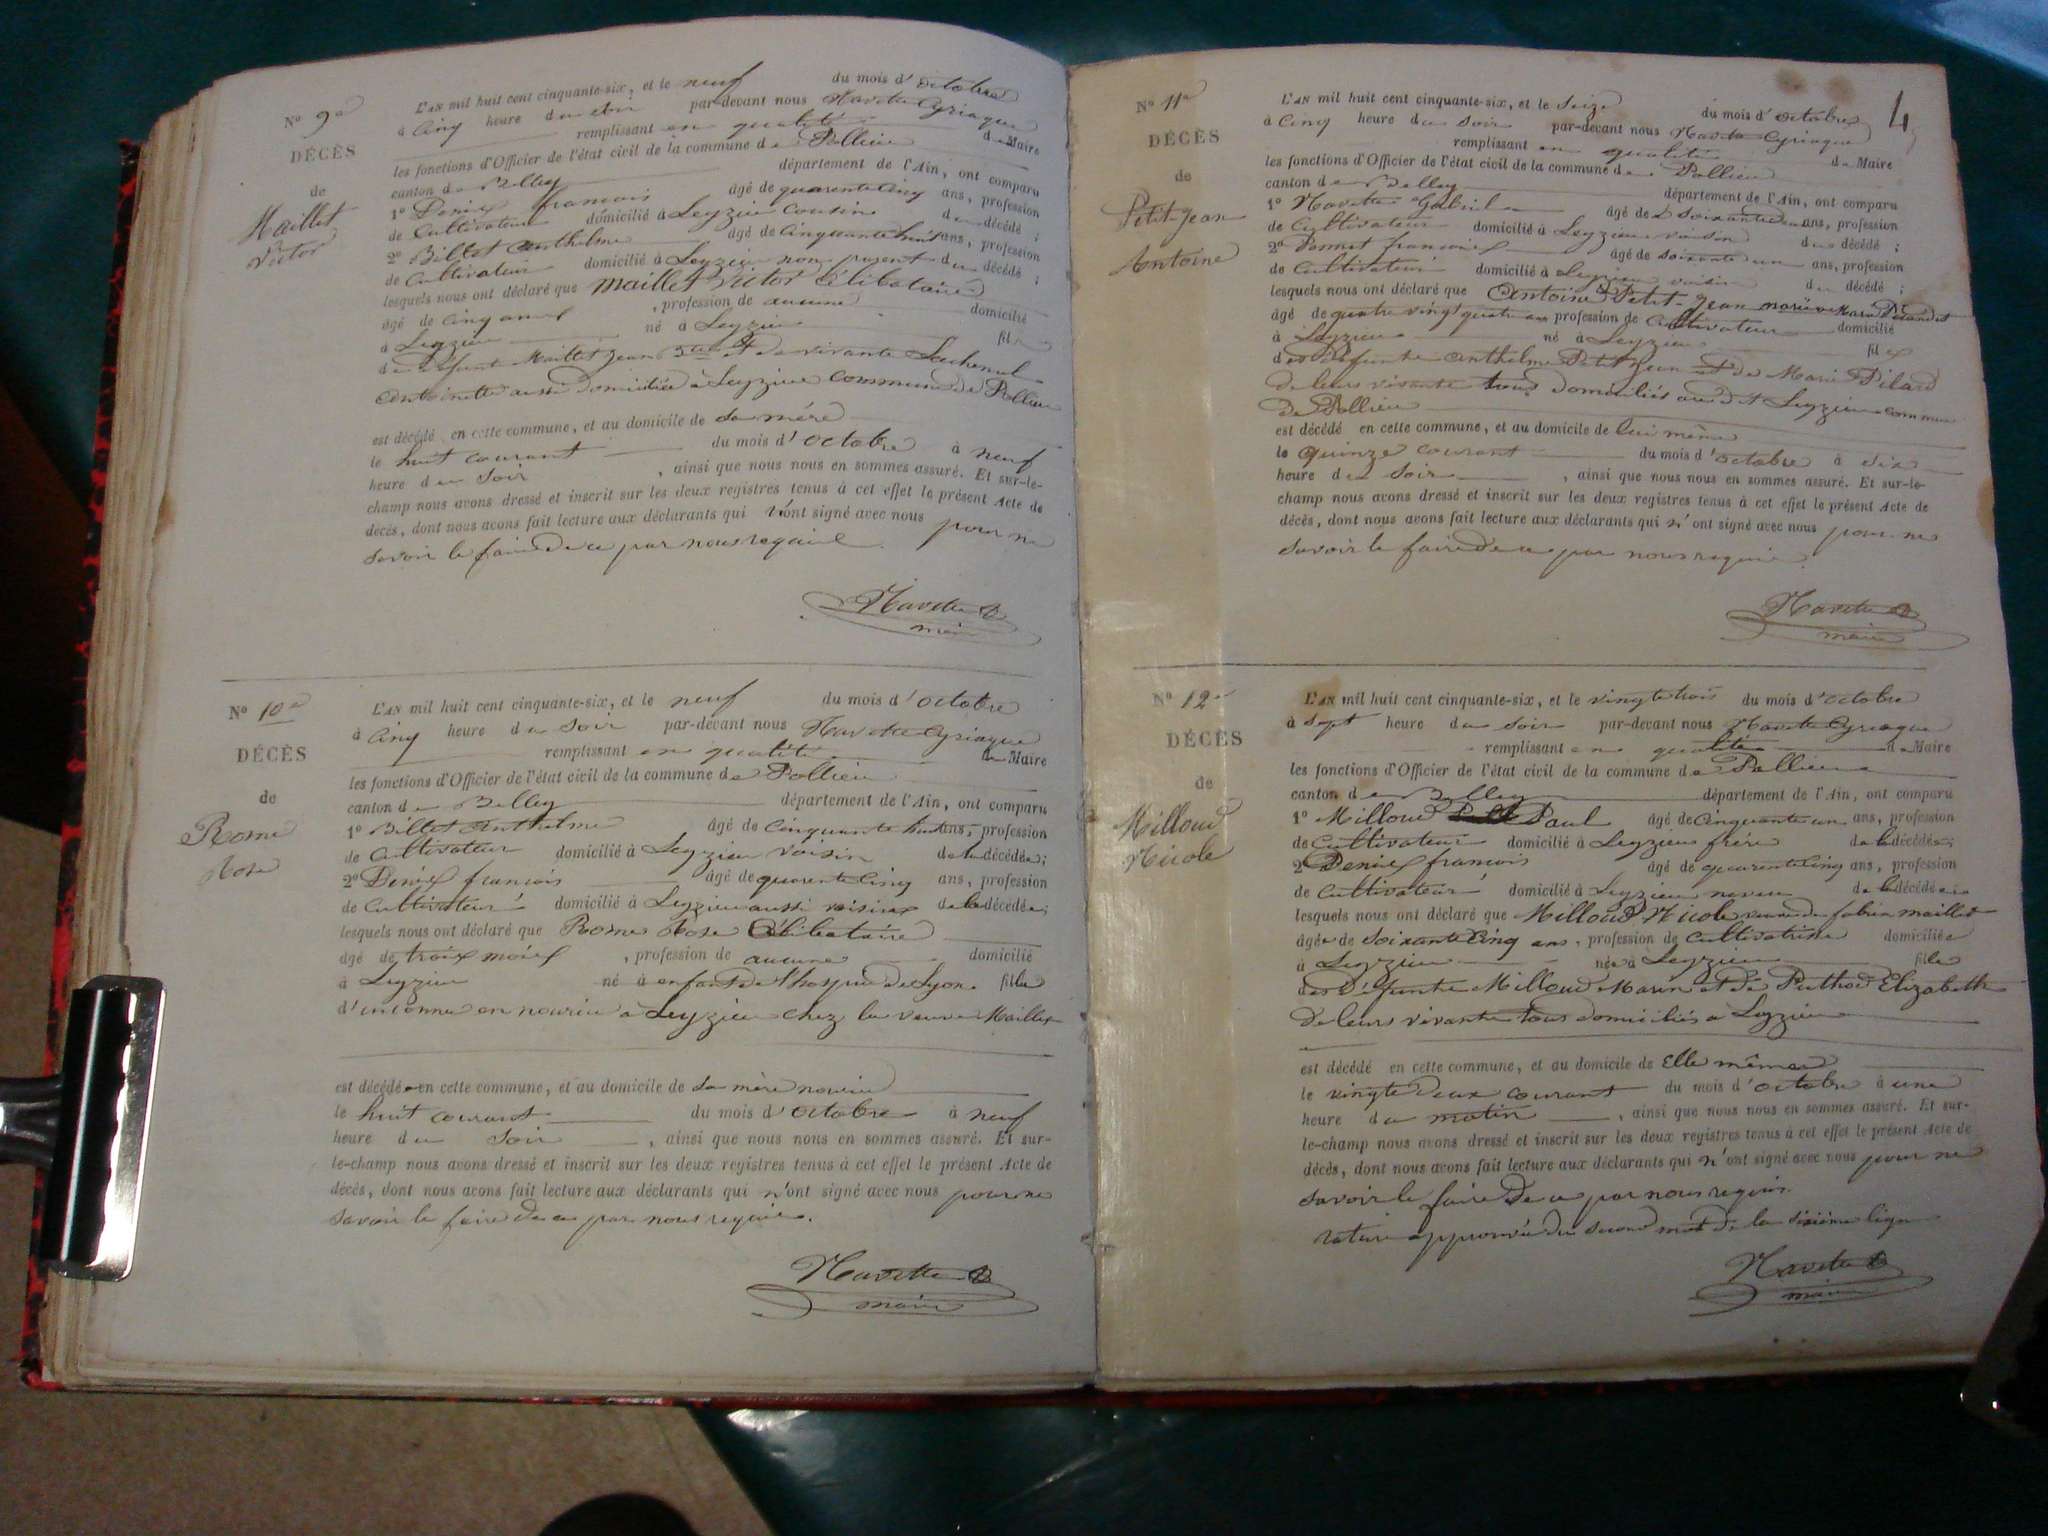 No 9e
DÉCÈS
de
Maillet
Victor
L'AN mil huit cent cinquante-six, et le neuf du mois d'octobre
à cinq heure du soir par-devant nous Navette Cyriaque
remplissant en qualité de Maire
les fonctions d'Officier de l'état civil de la commune de Pollieu
canton de Belley département de l'Ain, ont comparu
1o Denix francois âgé de quarente cinq ans, profession
de Cultivateur domicilié à Leyzieu cousin du décédé ;
2o Billet Anthelme âgé de Cinquante huit ans, profession
de Cultivateur domicilié à Leyzieu non parent du décédé ;
lesquels nous ont déclaré que Maillet Victor Célibataire
âgé de Cinq ans , profession de aucune domicilié
à Leyzieu né à Leyzieu fils
de défunt Maillet Jean et de vivante
Antoinette aussi domiciliée à Leyzieu commune de Pollieu
est décédé en cette commune, et au domicile de sa mère
le huit courant du mois d'octobre à neuf
heure du soir , ainsi que nous nous en sommes assuré. Et sur-le-
champ nous avons dressé et inscrit sur les deux registres tenus à cet effet le présent Acte de
décès, dont nous avons fait lecture aux déclarants qui n'ont signé avec nous pour ne
savoir le faire de ce par nous requie
Navette C
maire
No 10e
DÉCÈS
de
Rome
Rose
L'AN mil huit cent cinquante-six, et le neuf du mois d'octobre
à Cinq heure du soir par-devant nous Navette Cyriaque
remplissant en qualité de Maire
les fonctions d'Officier de l'état civil de la commune de Pollieu
canton de Belley département de l'Ain, ont comparu
1o Billet Anthelme âgé de Cinquante huit ans, profession
de Cultivateur domicilié à Leyzieu voisin de la décédée;
2o Denix francois âgé de quarente Cinq ans, profession
de Cultivateur domicilié à Leyzieu aussi voisin de la décédée;
lesquels nous ont déclaré que Rome Rose Célibataire
âgé de troix moix , profession de aucune domicilié
à Leyzieu né à enfant de l'hospice de Lyon fille
d'inconnu en nourice à Leyzieu chez la veuve Maillet
est décédée en cette commune, et au domicile de sa mère nourice
le huit courant du mois d'octobre à neuf
heure du soir , ainsi que nous nous en sommes assuré. Et sur-
le-champ nous avons dressé et inscrit sur les deux registres tenus à cet effet le présent Acte de
décès, dont nous avons fait lecture aux déclarants qui n'ont signé avec nous pour ne
savoir le faire de ce par nous requie.
Navette C
maire
4
No 11e
DÉCÈS
de
Petit-Jean
Antoine
L'AN mil huit cent cinquante-six, et le Seize du mois d'octobre
à Cinq heure du soir par-devant nous Navette Cyriaque
remplissant en qualité de Maire
les fonctions d'Officier de l'état civil de la commune de Pollieu
canton de Belley département de l'Ain, ont comparu
1o Navette Gabriel âgé de Soixante ans, profession
de Cultivateur domicilié à Leyzieu voisin du décédé ;
2o francois âgé de soixante un ans, profession
de Cultivateur domicilié à Leyzieu voisin du décédé ;
lesquels nous ont déclaré que Antoine Petit-Jean Marie
âgé de quatre vingt quatre ans profession de Cultivateur domicilié
à Leyzieu né à Leyzieu fils
des défunts Anthelme Petit Jean et de Marie Pilard
de leurs vivants tous domiciliés au dit Leyzieu commune
de Pollieu
est décédé en cette commune, et au domicile de lui même
le quinze courant du mois d'octobre à six
heure du soir , ainsi que nous nous en sommes assuré. Et sur-le-
champ nous avons dressé et inscrit sur les deux registres tenus à cet effet le présent Acte de
décès, dont nous avons fait lecture aux déclarants qui n'ont signé avec nous pour ne
savoir le faire de ce par nous requie
Navette C
maire
No 12e
DÉCÈS
de
Milloud
Nicole
L'AN mil huit cent cinquante-six, et le vingte trois du mois d'octobre
à sept heure du soir par-devant nous Navette Cyriaque
remplissant en qualité de Maire
les fonctions d'Officier de l'état civil de la commune de Pollieu
canton de Belley département de l'Ain, ont comparu
1o Milloud Paul âgé de Cinquante un ans, profession
de Cultivateur domicilié à Leyzieu frère de la décédée;
2o Denix francois âgé de quarente Cinq ans, profession
de Cultivateur domicilié à Leyzieu neveu de la décédée
lesquels nous ont déclaré que Milloud Nicole veuve de fabien maillet
âgée de soixante Cinq ans, profession de Cultivatrice domiciliée
à Leyzieu née à Leyzieu fille
des défunts Milloud Marin et de Puthod Elizabeth
de leurs vivants tous domiciliés à Leyzieu
est décédé en cette commune, et au domicile de Elle même
le vingte deux courant du mois d'octobre à une
heure du matin , ainsi que nous nous en sommes assuré. Et sur-
le-champ nous avons dressé et inscrit sur les deux registres tenus à cet effet le présent Acte de
décès, dont nous avons fait lecture aux déclarants qui n'ont signé avec nous pour ne
savoir le faire de ce par nous requis.
rature approuvée du second mot de la sixième ligne
Navette C
maire